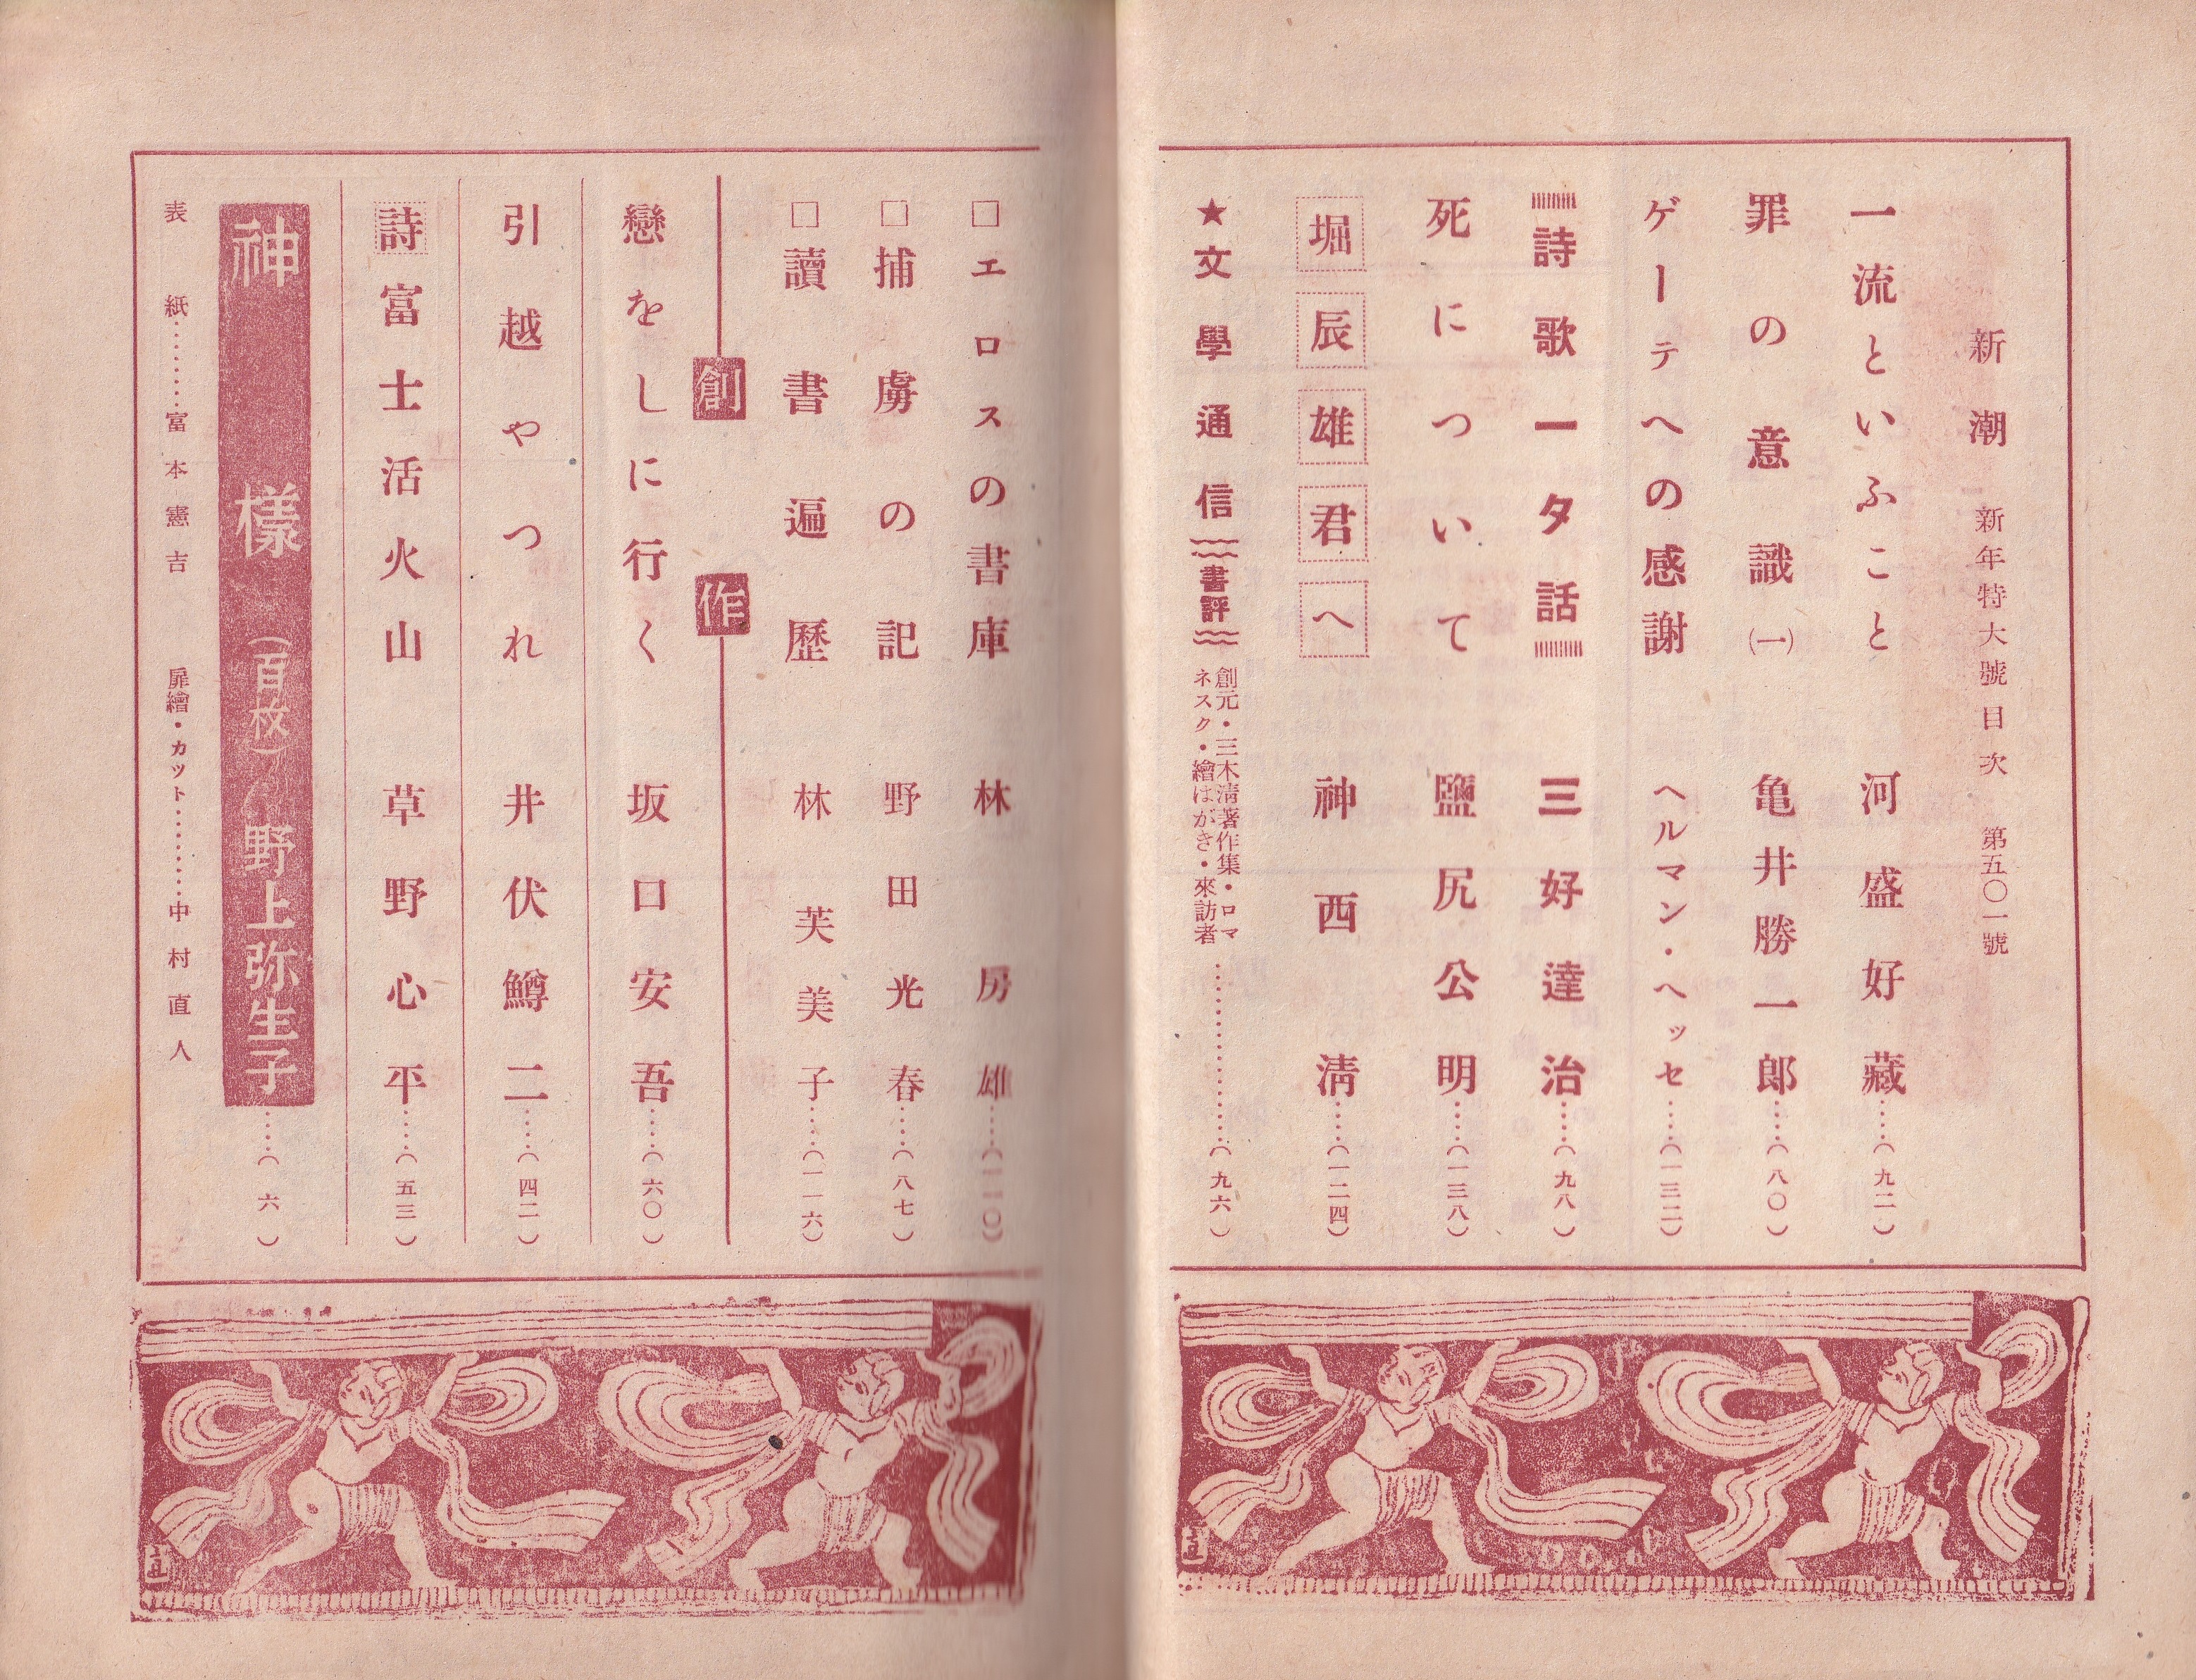 新潮 新年特大號目次 第五〇一號
一流といふこと 河盛好藏……(九二)
罪の意識(一) 亀井勝一郎……(八〇)
ゲーテへの感謝 ヘルマン・ヘッセ……(一三二)
詩歌一夕話 三好達治……(九八)
死について 鹽尻公明……(一三八)
堀辰雄君へ 神西清……(一二四)
★文學通信 書評 創元・三木清著作集・ロマネスク・繪はがき・來訪者……………(九六)
□エロスの書庫 林房雄……(一一〇)
□捕虜の記 野田光春……(八七)
□讀書遍歴 林芙美子……(一一六)
創作
戀をしに行く 坂口安吾……(六〇)
引越やつれ 井伏鱒二……(四二)
詩 富士活火山 草野心平……(五三)
神樣(百枚) 野上弥生子……(六)
表紙………富本憲吉 扉繪・カット………中村直人
直
直